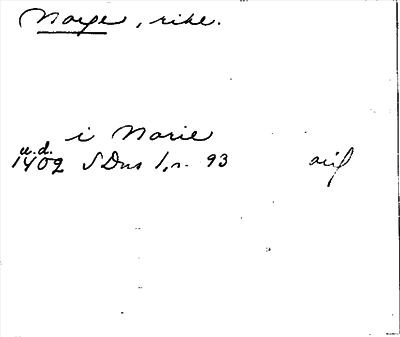 Norge, rike.
i Norie
u.d.
1402 SDns 1, s. 93 orig